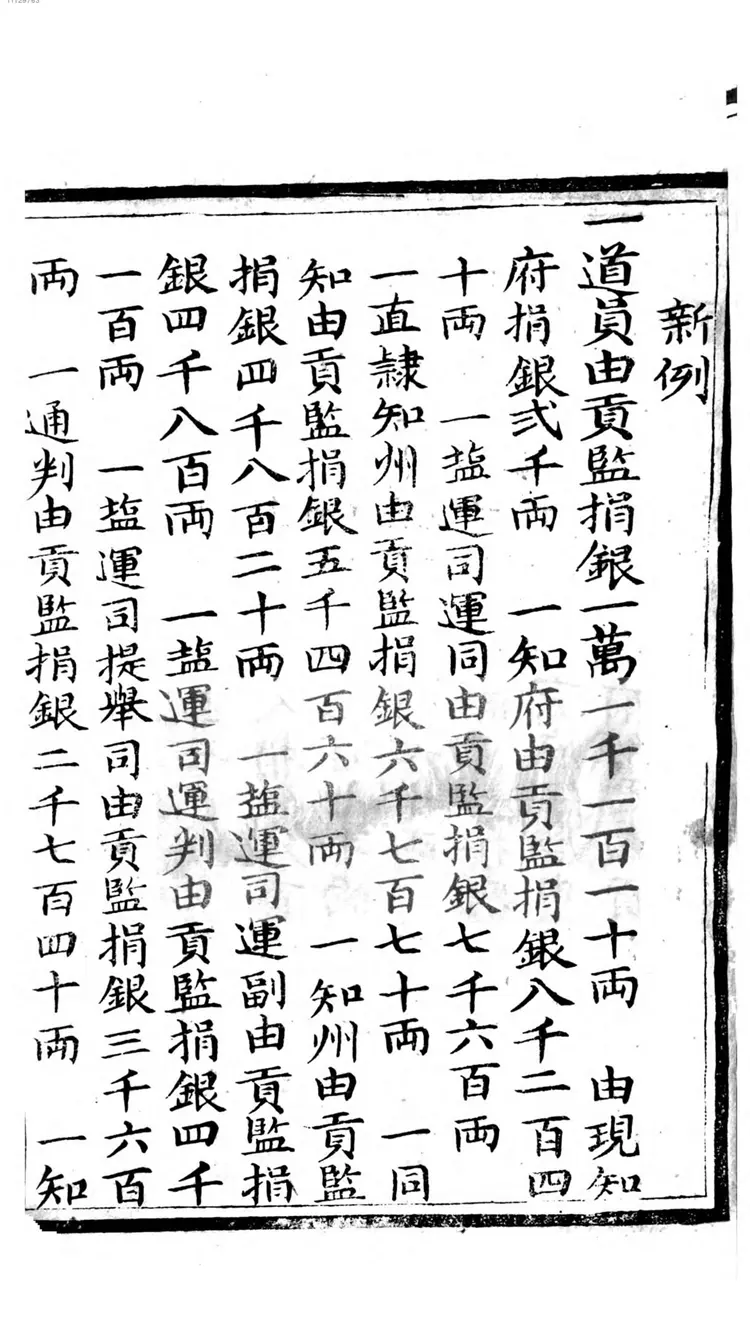 11129763
新例
一道員由貢監捐銀一萬一千一百一十両 由現知
府捐銀弐千両 一知府由貢監捐銀八千二百四
十両 一盐運司運同由貢監捐銀七千六百両
一直隷知州由貢監捐銀六千七百七十両 一同
知由貢監捐銀五千四百六十両 一知州由貢監
捐銀四千八百二十両 一盐運司運副由貢監捐
銀四千八百両 一盐運司運判由貢監捐銀四千
一百両 一盐運司提舉司由貢監捐銀三千六百
両 一通判由貢監捐銀二千七百四十両 一知